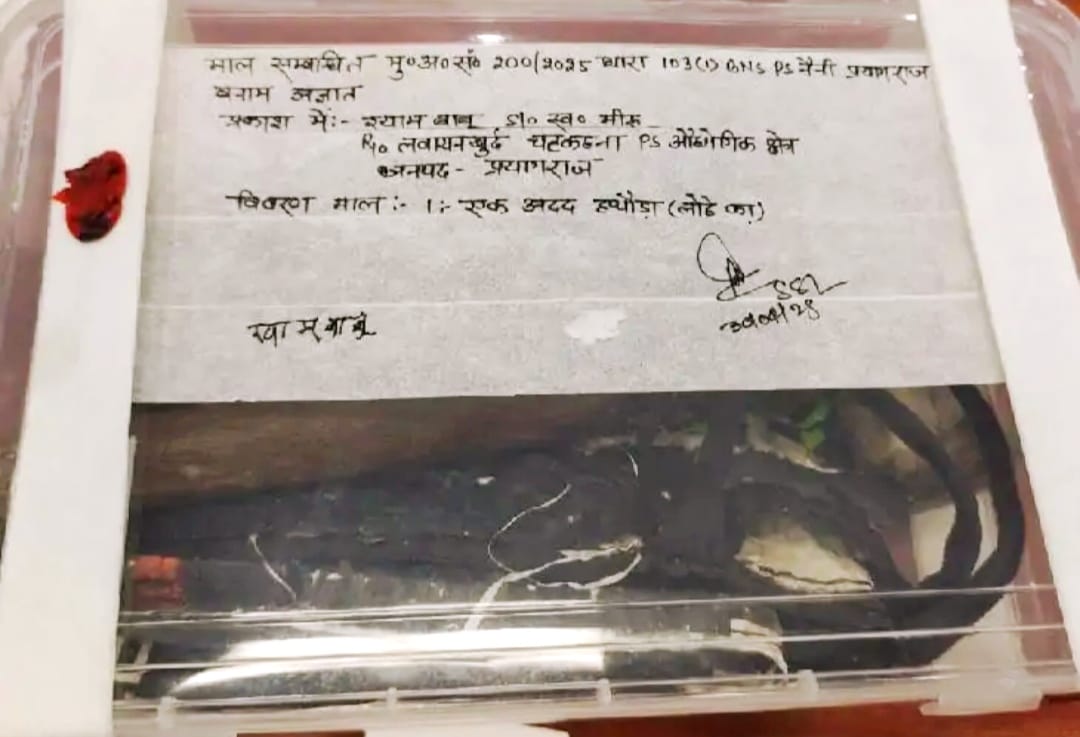 माल सम्बाधित मु०अ०सं० 200/2025 धारा 103(1) BNS PS नैनी प्रयागराज
बनाम अज्ञात
प्रकाश में:- श्याम बाबू S/o स्व० भीरू
R/o लवायनखुर्द PS औद्योगिक क्षेत्र
जनपद - प्रयागराज
विवरण माल :- 1:- एक अदद हथौड़ा (लोहे का)